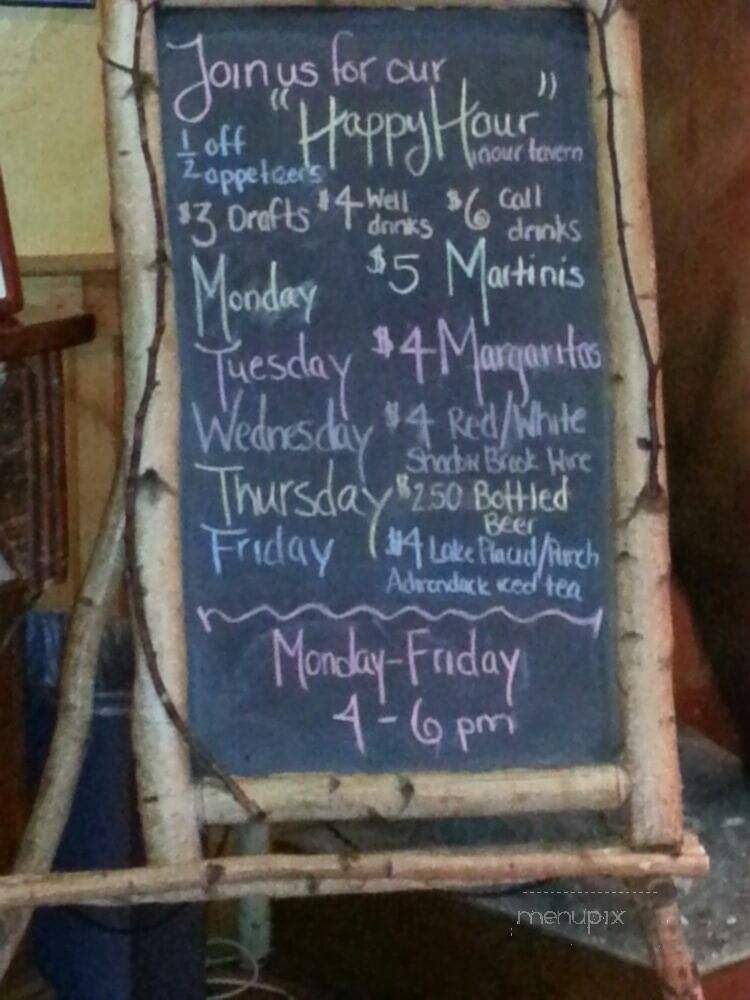 Join us for our
"Happy Hour"
in our tavern
1/2 off
appetizers
$3 Drafts $4 Well drinks $6 Call drinks
Monday $5 Martinis
Tuesday $4 Margaritas
Wednesday $4 Red/White
Shadow Brook Wine
Thursday $2.50 Bottled
Beer
Friday $4 Lake Placid/Punch
Adirondack iced tea
Monday-Friday
4-6 pm
menupix